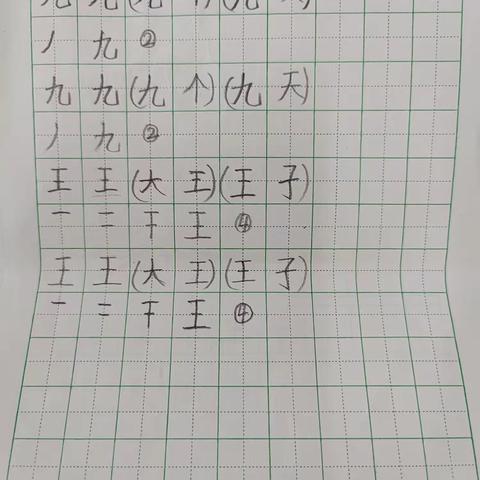 九 九 (九 个) (九 天)
丿 九 ②
九 九 (九 个) (九 天)
丿 九 ②
王 王 (大 王) (王 子)
一 二 干 王 ④
王 王 (大 王) (王 子)
一 二 干 王 ④